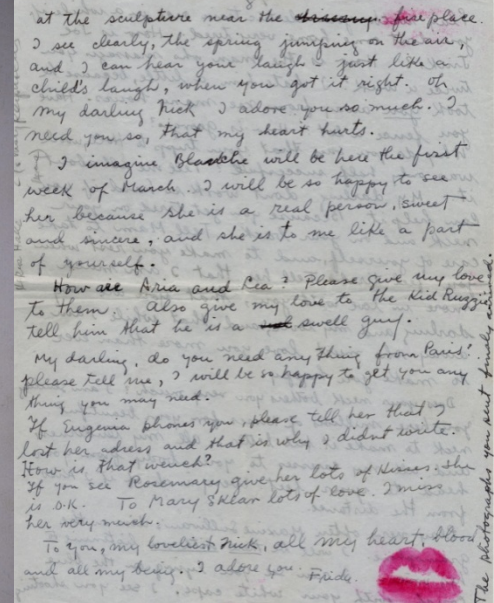 at the sculpture near the fire place.
I see clearly, the spring jumping on the air,
and I can hear your laugh - just like a
child's laugh, when you got it right. Oh
my darling Nick I adore you so much. I
need you so, that my heart hurts.
I imagine Blanche will be here the first
week of March. I will be so happy to see
her because she is a real person, sweet
and sincere, and she is to me like a part
of yourself.
How are Aria and Lea? Please give my love
to them. Also give my love to the Kid Ruzzie
tell him that he is a swell guy.
My darling, do you need any thing from Paris?
please tell me, I will be so happy to get you any
thing you may need.
If Eugenia phones you, please tell her that I
lost her adress and that is why I didnt write.
How is that wench?
If you see Rosemary give her lots of kisses. She
is O.K. To Mary Sklar lots of love. I miss
her very much.
To you, my loveliest Nick, all my heart, blood
and all my being. I adore you.
Frida.
The photographs you sent finally arrived.